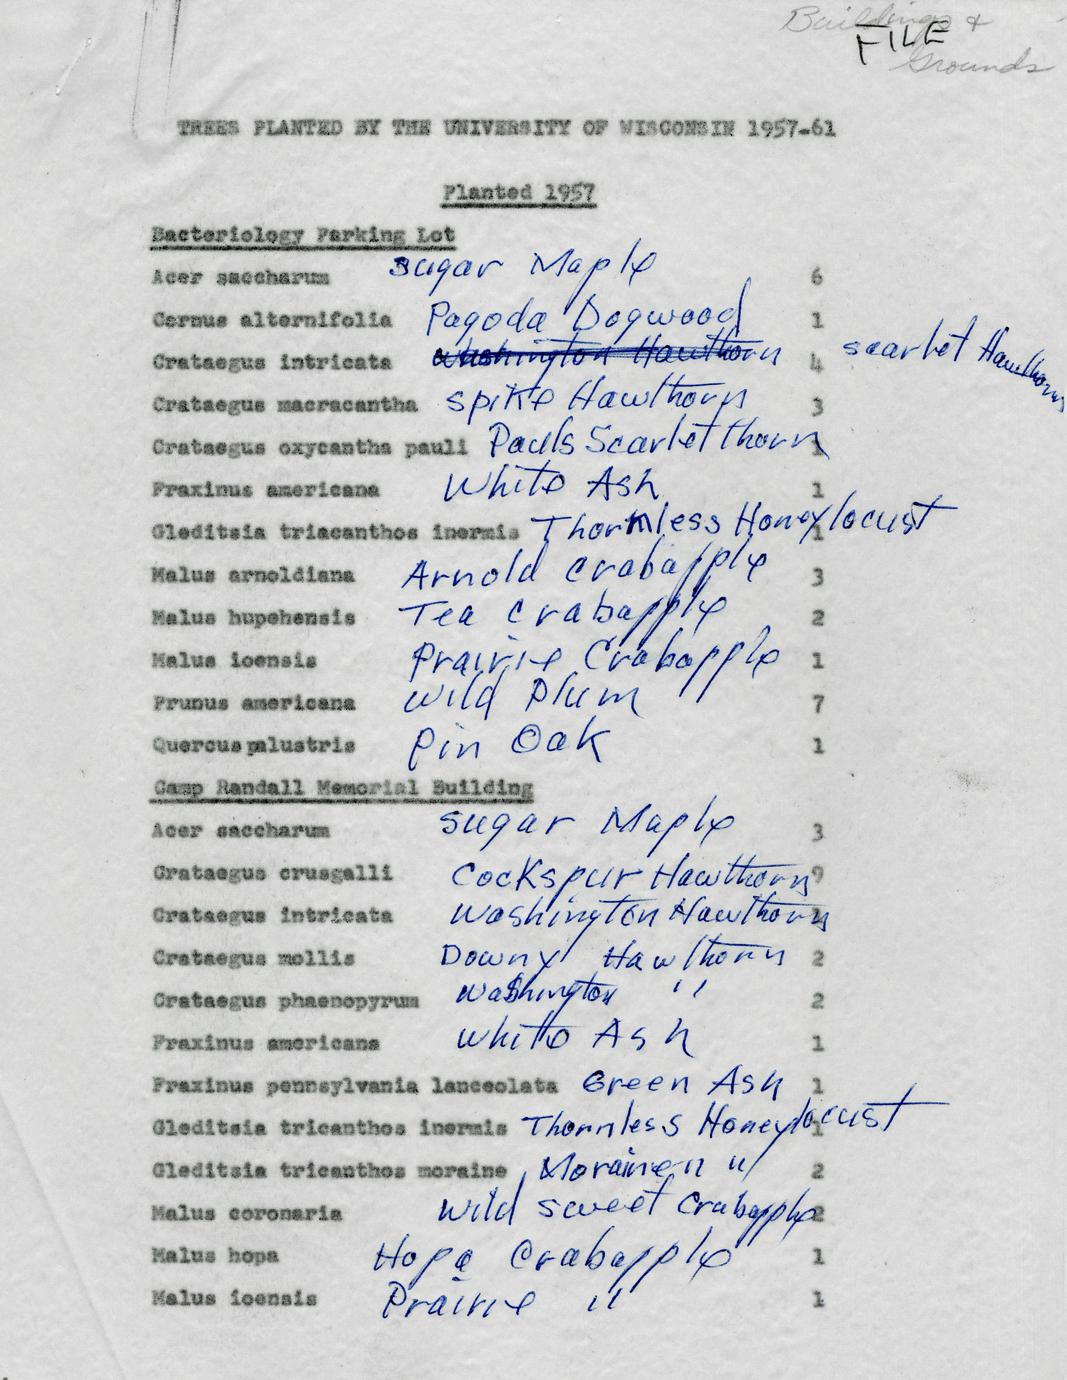 Buildings &
FILE
Grounds
TREES PLANTED BY THE UNIVERSITY OF WISCONSIN 1957-61
Planted 1957
Bacteriology Parking Lot
Acer saccharum Sugar Maple 6
Cornus alternifolia Pagoda Dogwood 1
Crataegus intricata Washington Hawthorn 4 scarlet Hawthorn
Crataegus macracantha spike Hawthorn 3
Crataegus oxycantha pauli Pauls Scarlet thorn 1
Fraxinus americana White Ash 1
Gleditsia triacanthos inermis Thornless Honeylocust 1
Malus arnoldiana Arnold crabapple 3
Malus hupehensis Tea crabapple 2
Malus ioensis Prairie Crabapple 1
Prunus americana Wild Plum 7
Quercus palustris Pin Oak 1
Camp Randall Memorial Building
Acer saccharum Sugar Maple 3
Crataegus crusgalli Cockspur Hawthorn 9
Crataegus intricata Washington Hawthorn
Crataegus mollis Downy Hawthorn 2
Crataegus phaenopyrum Washington " 2
Fraxinus americana White Ash 1
Fraxinus pennsylvania lanceolata Green Ash 1
Gleditsia tricanthos inermis Thornless Honeylocust 1
Gleditsia tricanthos moraine Moraine " " 2
Malus coronaria Wild sweet Crabapple 2
Malus hopa Hopa Crabapple 1
Malus ioensis Prairie " 1